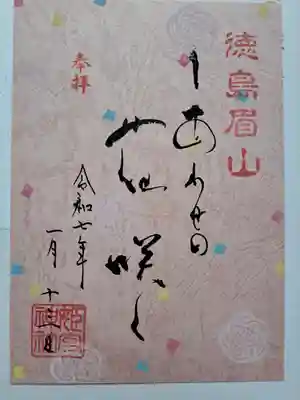 徳島眉山
しあわせの
花咲く
奉拝
令和七年
一月十日